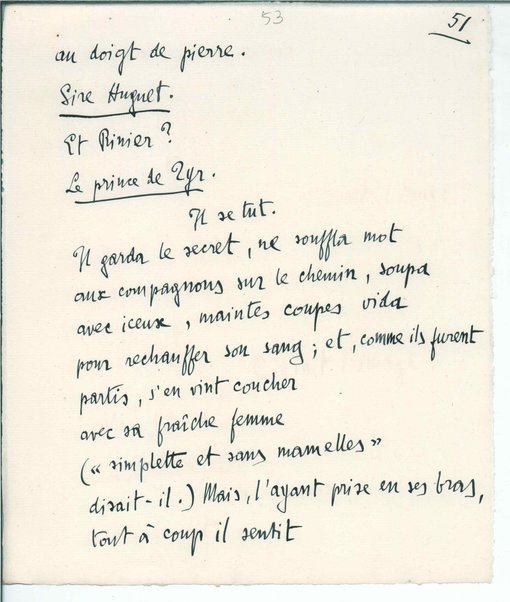 53
51
au doigt de pierre.
Sire Huguet.
Et Rinier ?
Le prince de Tyr.
Il se tut.
Il garda le secret, ne souffla mot
aux compagnons sur le chemin, soupa
avec iceux, maintes coupes vida
pour rechauffer son sang ; et, comme ils furent
partis, s'en vint coucher
avec sa fraîche femme
(« simplette et sans mamelles »
disait-il.) Mais, l'ayant prise en ses bras,
tout à coup il sentit